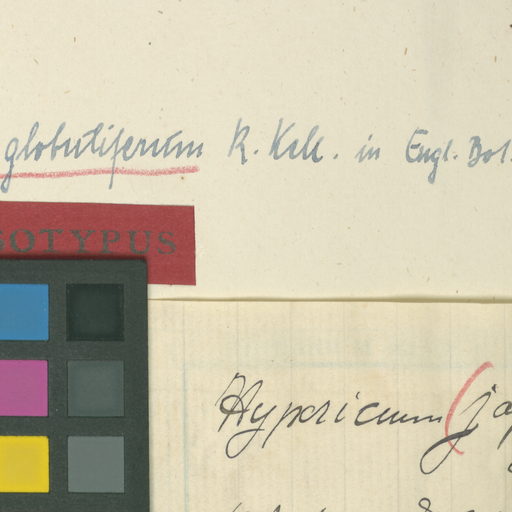 globuliferum R. Kell. in Engl. Bot.
SOTYPUS
Hypericum (ja